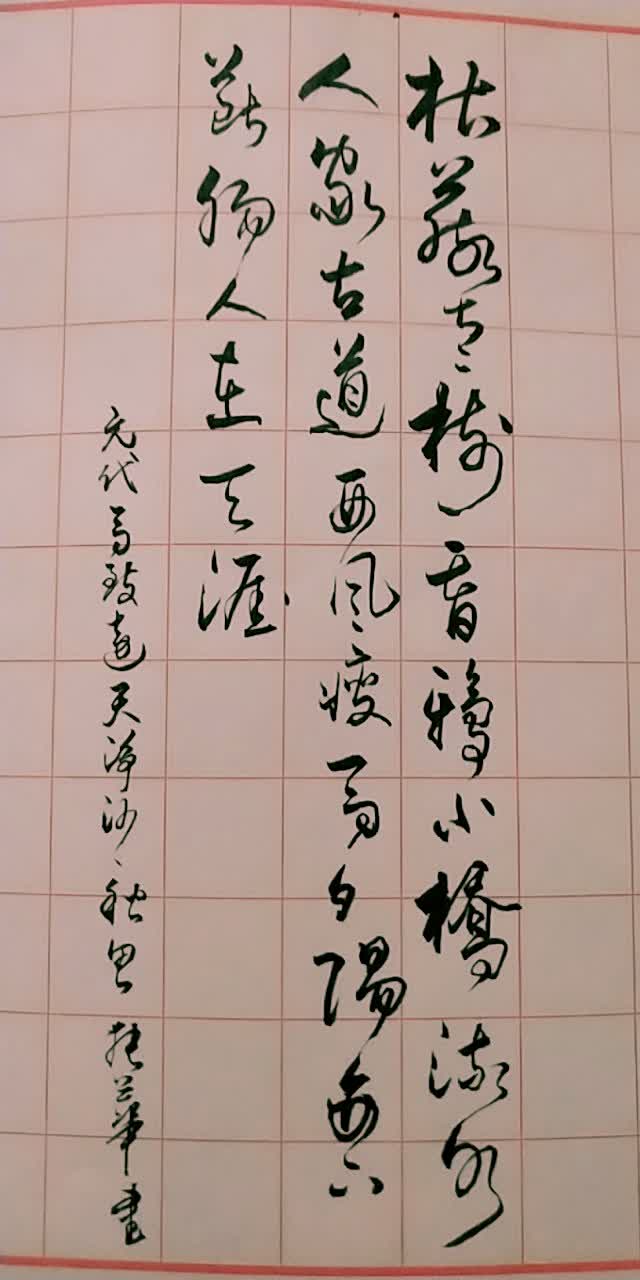 枯藤老樹昏鴉小橋流水
人家古道西風瘦馬夕陽西下
斷腸人在天涯
元代馬致遠天淨沙、秋思 華書